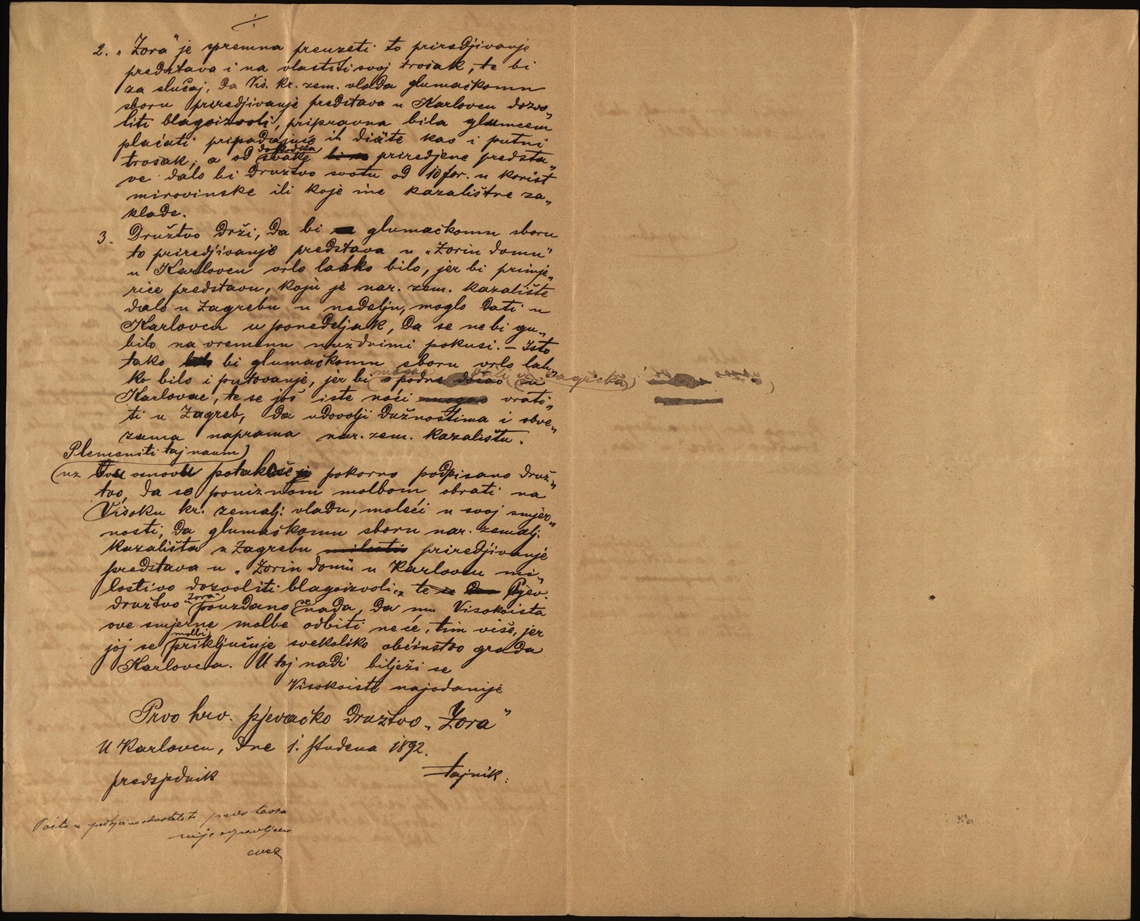 2. „Zora" je spremna preuzeti to priredjivanje
predstava i na vlastiti svoj trošak, te bi
za slučaj, da Vis. kr. zem. vlada glumačkomu
sboru priredjivanje predstava u Karlovcu dozvo„
liti blagoizvoli, pripravna bila glumcem
plaćati pripadajuće ih diäte kao i putni
trošak, a od svake priredjene predsta„
ve dalo bi družtvo svotu od 10 for. u korist
mirovinske ili koje ine kazalištne za„
klade.
3. Družtvo drži, da bi glumačkomu sboru
to priredjivanje predstava u „Zorin domu"
u Karlovcu vrlo lahko bilo, jer bi primje„
rice predstavu, koju je nar. zem. kazalište
dalo u Zagrebu u nedelju, moglo dati u
Karlovcu u ponedeljak, da se ne bi gu„
bilo na vremenu uzdržnimi pokusi. – Isto
tako bi glumačkomu sboru vrlo lah„
ko bilo i putovanje, jer bi iz Zagreba u
Karlovac, te se još iste noći vrati„
ti u Zagreb, da udovolji dužnostima i obve„
zama naprama nar. zem. kazalištu.
Plemeniti taj naum
uz osnovu potakoše pokorno podpisano druž„
tvo, da se poniznom molbom obrati na
Visoku kr. zemalj. vladu, moleći u svoj smjer„
nosti, da glumačkomu sboru nar. zemalj.
kazališta u Zagrebu milosti priredjivanje
predstava u „Zorin domu u Karlovcu mi„
lostivo dozvoliti blagoizvoli, te Pjev.
družtvo „Zora" pouzdano se nada, da mu Visokoista
ove smjerne molbe odbiti ne će, tim više, jer
joj se molbi priključuje svekoliko obćinstvo grada
Karlovca. U toj nadi bilježi se
Visokoiste najodanije
Prvo hrv. pjevačko družtvo „Zora"
U Karlovcu, dne 1. studena 1892.
predsjednik tajnik: